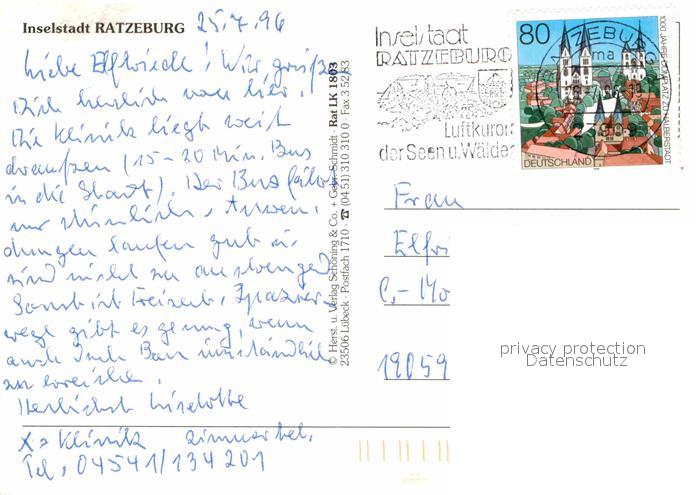 Inselstadt RATZEBURG 25.7.96
Liebe Elfriede! Wir grüßen
Dich herzlich von hier.
Die Klinik liegt weit
draußen (15-20 Min. Bus
in die Stadt). Der Bus fährt
nur stündlich. Anwen-
dungen laufen gut u.
sind nicht zu anstrengend
Sonst ist Freizeit. Spazier-
wege gibt es genug, wenn
auch per Bus umständlich
zu erreichen.
Herzlichst Liselotte
x = Klinik Zimmertel.
Tel. 04541/134201
© Herst. u. Verlag Schöning & Co. + Gebr. Schmidt · Rat LK 1803
23506 Lübeck · Postfach 1710 · ☎ (04 51) 310 310 0 · Fax 3 52 83
Inselstadt
RATZEBURG
Luftkurort
der Seen u. Wälder
RATZEBURG
80
1000 JAHRE DOMPLATZ ZU HALBERSTADT
DEUTSCHLAND
Frau
Elfri
C.-Mo
19059
privacy protection
Datenschutz